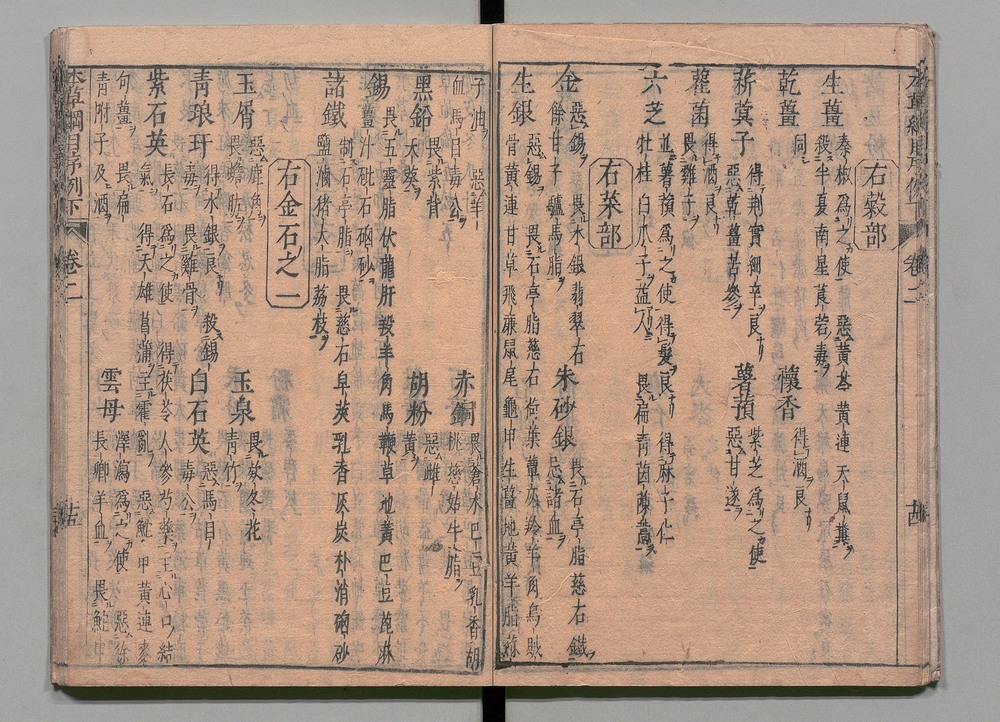 右穀部
生薑 秦椒爲之使 惡黃芩 黃連 天鼠糞
殺半夏南星莨菪毒
乾薑 同
蘹香 得酒良
菥蓂子 得荆實細辛良
惡乾薑苦參
薯蕷 紫芝爲之使
惡甘遂
雚菌 得酒良
畏雞子
六芝 並薯蕷爲之使 得髮良 得麻子仁
牡桂白瓜子益人 畏扁青茵蔯蒿
右菜部
金 惡錫 畏水銀翡翠石
餘甘子 驢馬脂
朱砂銀 畏石亭脂慈石鐵
忌諸血
生銀 惡錫 畏石亭脂慈石荷葉蕈灰羚羊角烏賊
骨黃連甘草飛廉鼠尾龜甲生薑地黃羊脂蘇
子油 惡羊
血馬目毒公
赤銅 畏蒼朮巴豆乳香胡
桃慈姑牛脂
黑鉛 畏紫背
天葵
胡粉 惡雌
黃
錫 畏五靈脂伏龍肝羖羊角馬鞭草地黃巴豆蓖麻
薑汁砒石硇砂
諸鐵 制石亭脂 畏慈石皁莢乳香灰炭朴消硇砂
鹽滷猪犬脂荔枝
右金石之一
玉屑 惡鹿角
畏蟾肪
玉泉 畏欵冬花
青竹
青琅玕 得水銀良 殺錫
毒 畏雞骨
白石英 惡馬目
毒公
紫石英 長石爲之使 得茯苓人參芍藥主心口結
氣 得天雄菖蒲主霍亂 惡鮀甲黃連麥
句薑 畏扁
青附子及酒
雲母 澤瀉爲之使 惡徐
長卿羊血 畏鮀甲
本草綱目序例下 卷二